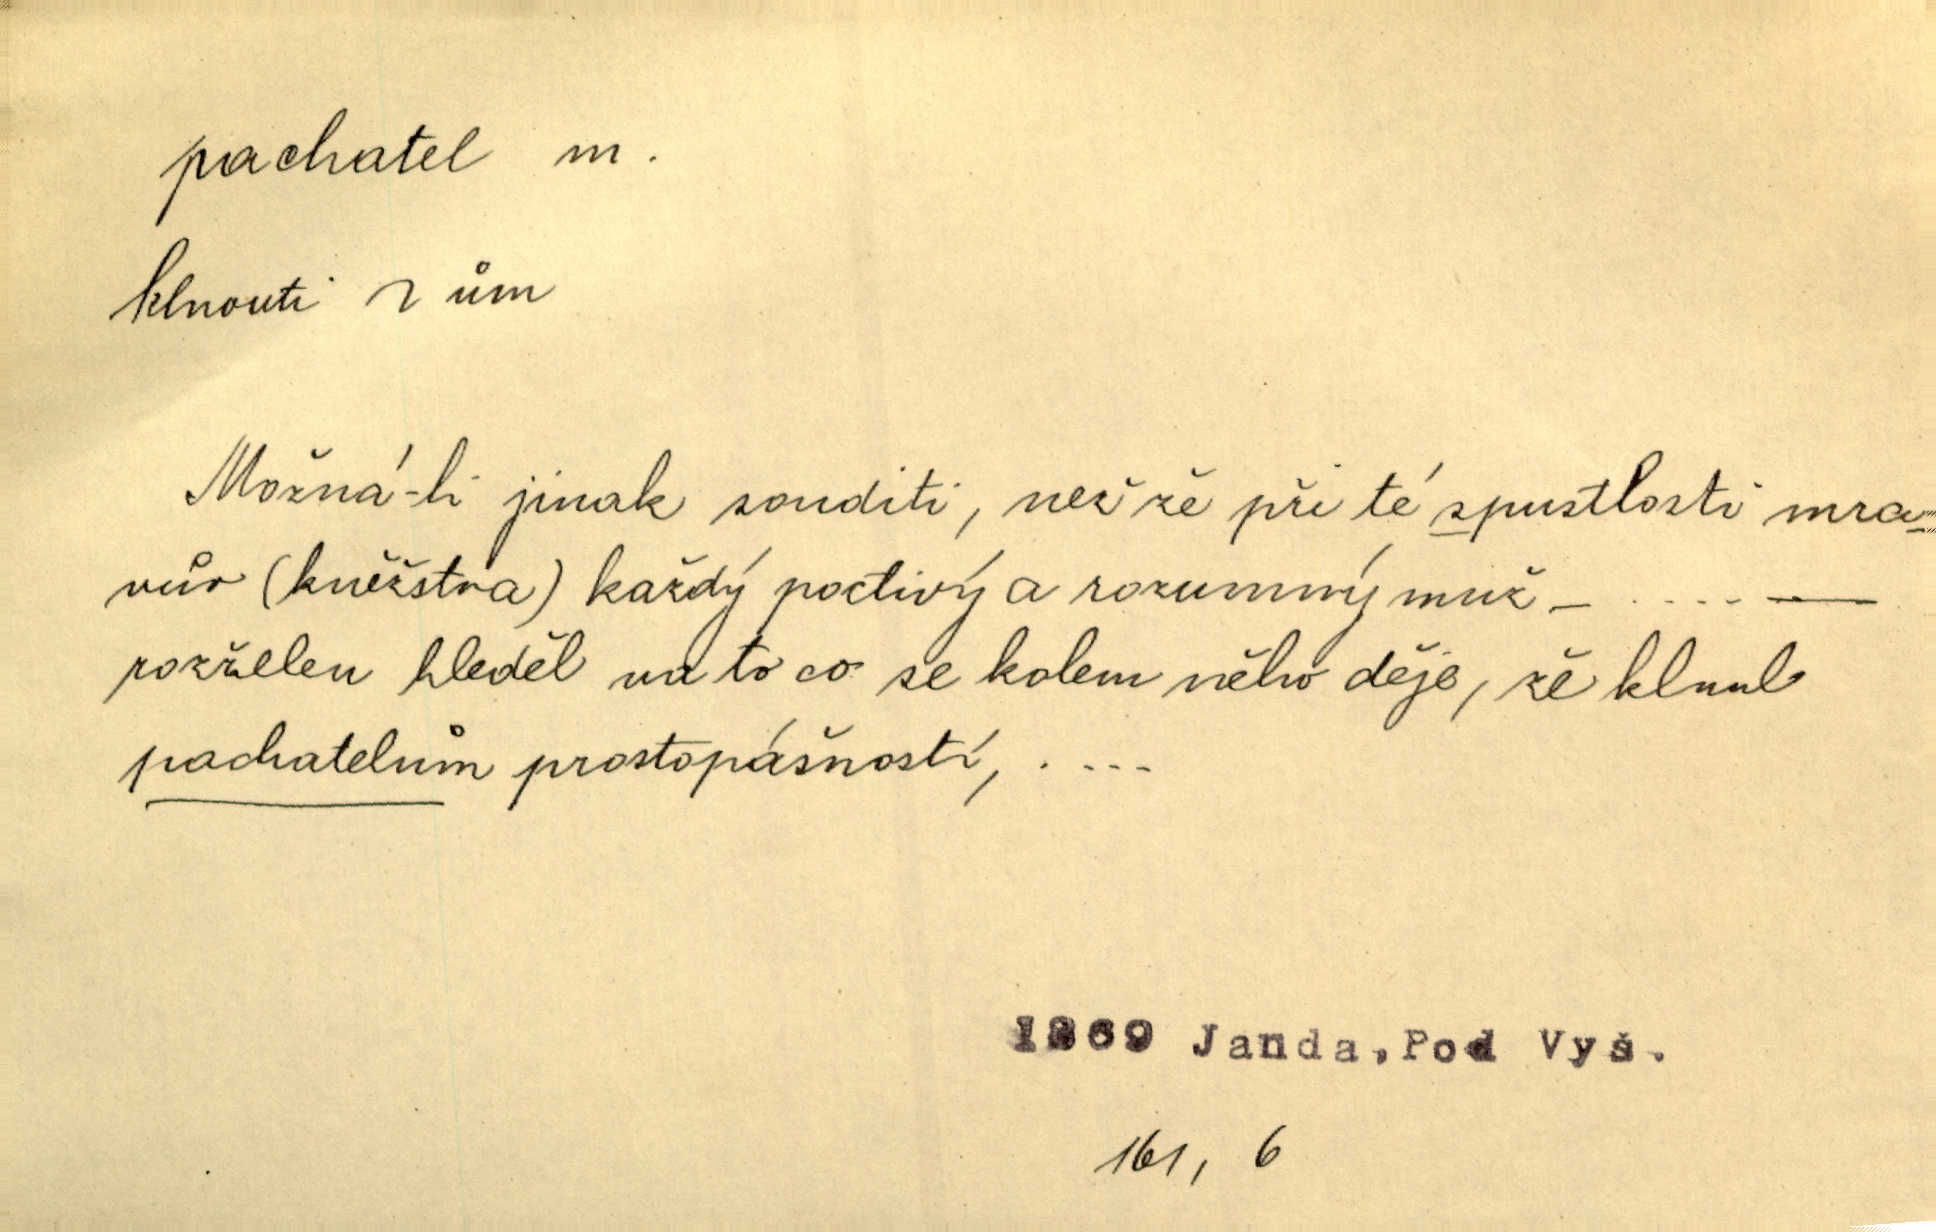 pachatel m.
klnouti ~ ům
Možná-li jinak souditi, než že při té spustlosti mra-
vův (kněžstva) každý poctivý a rozumný muž – . . . . —
rozželen hleděl na to co se kolem něho děje, že klnul
pachatelům prostopášností, . . . .
1869 Janda, Pod Vyš.
161, 6